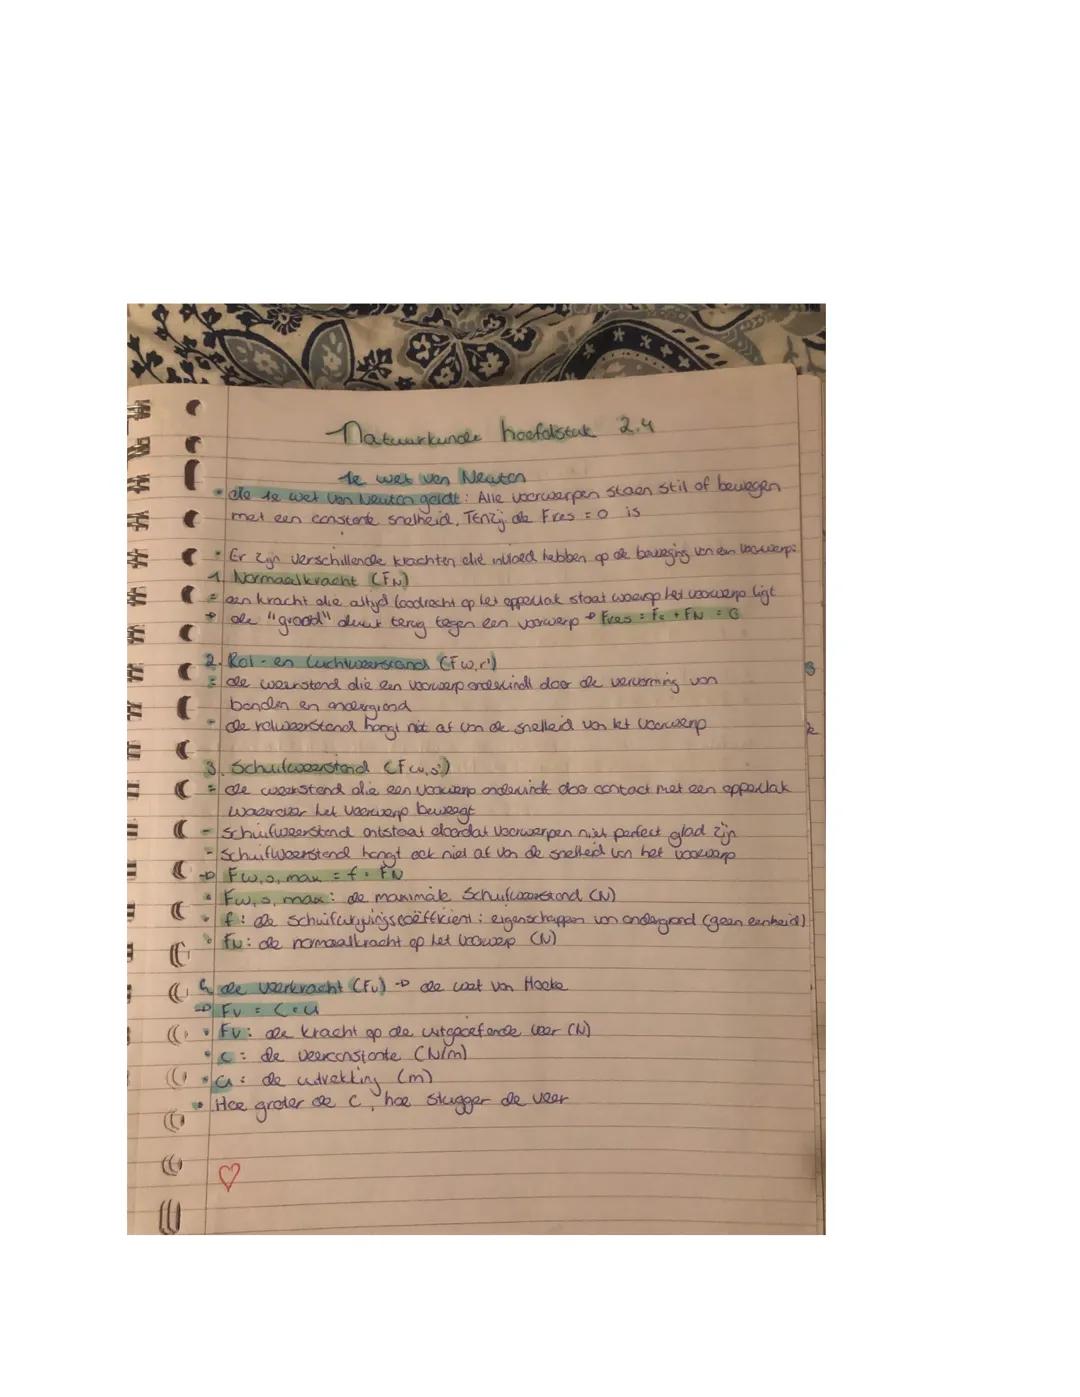 Natuurkunde hoofdstuk 2.4
1e wet van Newton
• de 1e wet van Newton geldt: Alle voorwerpen staan stil of bewegen
met een constante snelheid, TENzij de Fres = 0 is
• Er zijn verschillende krachten die invloed hebben op de beweging van een voorwerp:
1. Normaalkracht (FN)
= een kracht die altijd loodrecht op het oppervlak staat waarop het voorwerp ligt
→ de "grond" duwt terug tegen een voorwerp → Fres = Fz + FN = 0
2. Rol- en luchtweerstand (Fw,r)
= de weerstand die een voorwerp ondervindt door de vervorming van
banden en ondergrond
- de rolweerstand hangt niet af van de snelheid van het voorwerp
3. Schuifweerstand (Fw,s)
= de weerstand die een voorwerp ondervindt door contact met een oppervlak
waarover het voorwerp beweegt
- schuifweerstand ontstaat doordat voorwerpen niet perfect glad zijn
- schuifweerstand hangt ook niet af van de snelheid van het voorwerp
→ Fw,s,max = f · FN
• Fw,s,max: de maximale schuifweerstand (N)
• f: de schuifwrijvingscoëfficient: eigenschappen van ondergrond (geen eenheid)
• FN: de normaalkracht op het voorwerp (N)
4. de veerkracht (Fv) → de wet van Hooke
→ Fv = C · u
• Fv: de kracht op de uitgoefende veer (N)
• C: de veerconstante (N/m)
• u: de uitrekking (m)
• Hoe groter de C, hoe stugger de veer